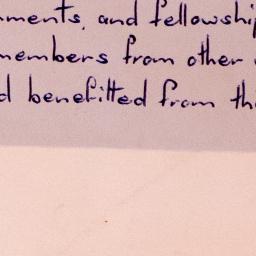 ments, and fellowship
members from other
d benefitted from thi